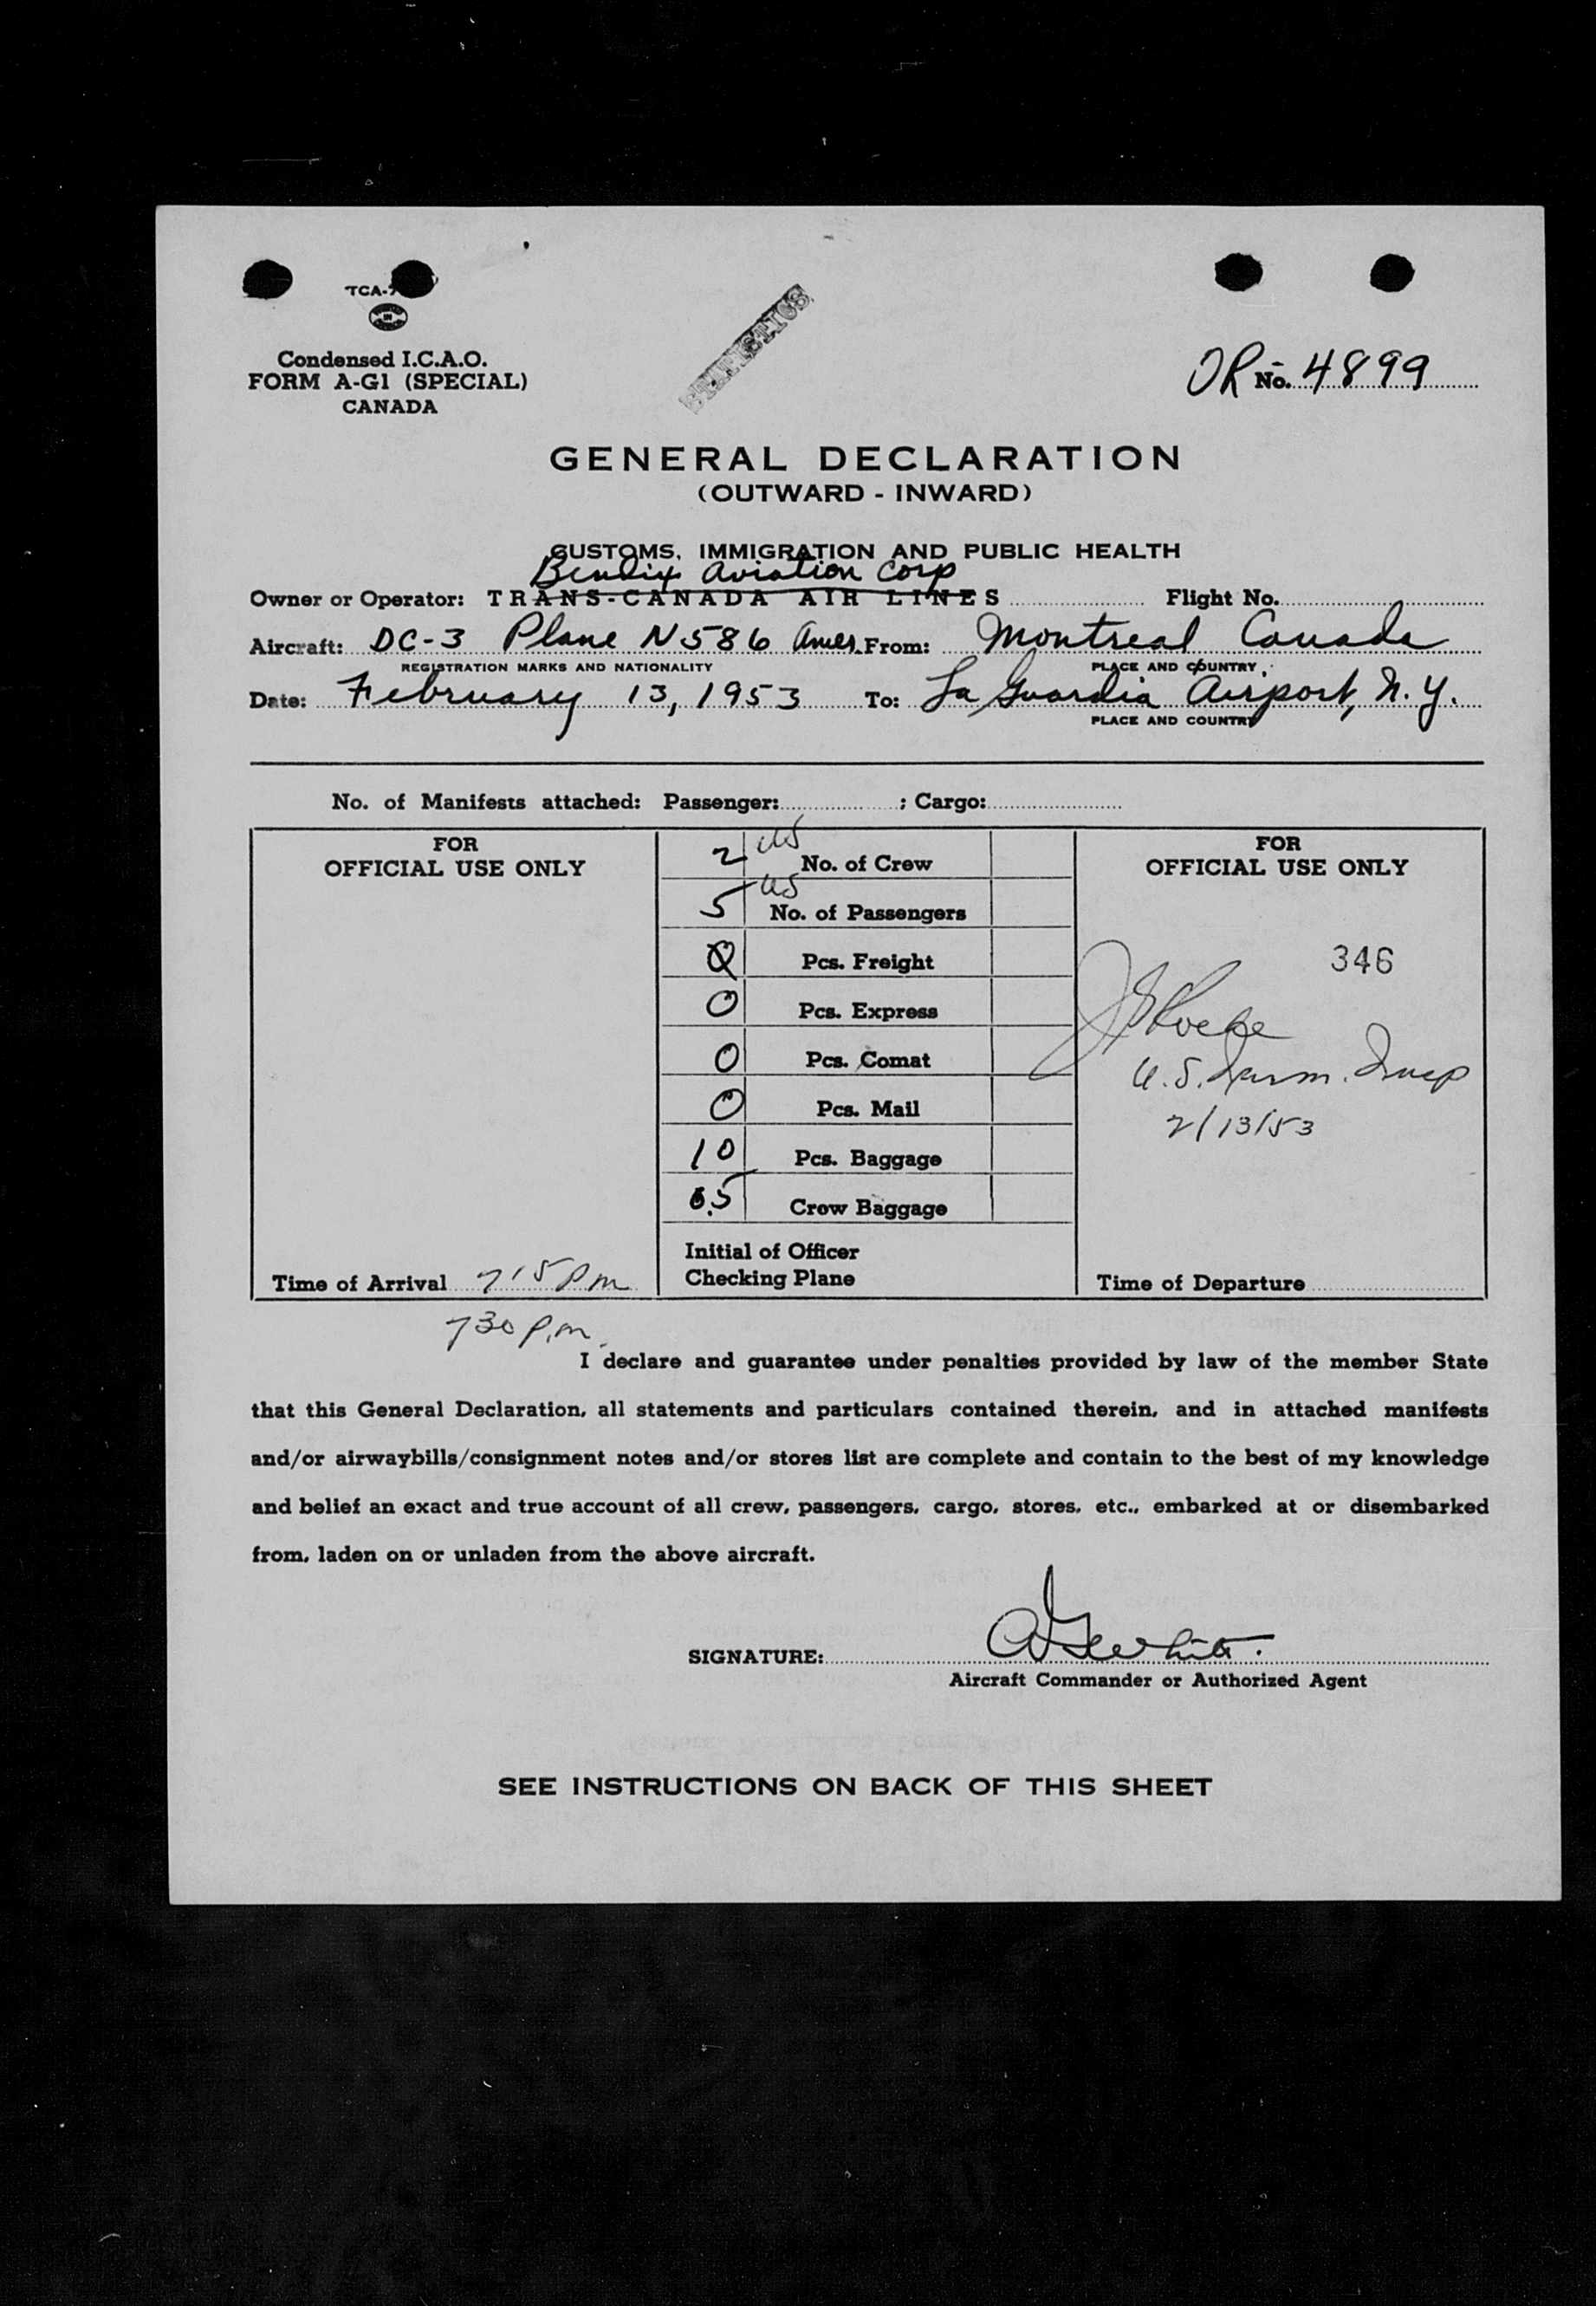 TCA-
Condensed I.C.A.O.
FORM A-G1 (SPECIAL)
CANADA
STATISTICS
OR No. 4899
GENERAL DECLARATION
(OUTWARD - INWARD)
CUSTOMS, IMMIGRATION AND PUBLIC HEALTH
Bendix Aviation Corp
Owner or Operator: TRANS-CANADA AIR LINES Flight No.
Aircraft: DC-3 Plane N586 Amer. From: Montreal Canada
REGISTRATION MARKS AND NATIONALITY PLACE AND COUNTRY
Date: February 13, 1953 To: La Guardia Airport, N.Y.
PLACE AND COUNTRY
No. of Manifests attached: Passenger: ; Cargo:
FOR
OFFICIAL USE ONLY
Time of Arrival 715 Pm
730 P.m.
2 US No. of Crew
5 US No. of Passengers
0 Pcs. Freight
0 Pcs. Express
0 Pcs. Comat
0 Pcs. Mail
10 Pcs. Baggage
5 Crew Baggage
Initial of Officer
Checking Plane
FOR
OFFICIAL USE ONLY
346
U.S. Imm. Insp
2/13/53
Time of Departure
I declare and guarantee under penalties provided by law of the member State
that this General Declaration, all statements and particulars contained therein, and in attached manifests
and/or airwaybills/consignment notes and/or stores list are complete and contain to the best of my knowledge
and belief an exact and true account of all crew, passengers, cargo, stores, etc., embarked at or disembarked
from, laden on or unladen from the above aircraft.
SIGNATURE: White
Aircraft Commander or Authorized Agent
SEE INSTRUCTIONS ON BACK OF THIS SHEET